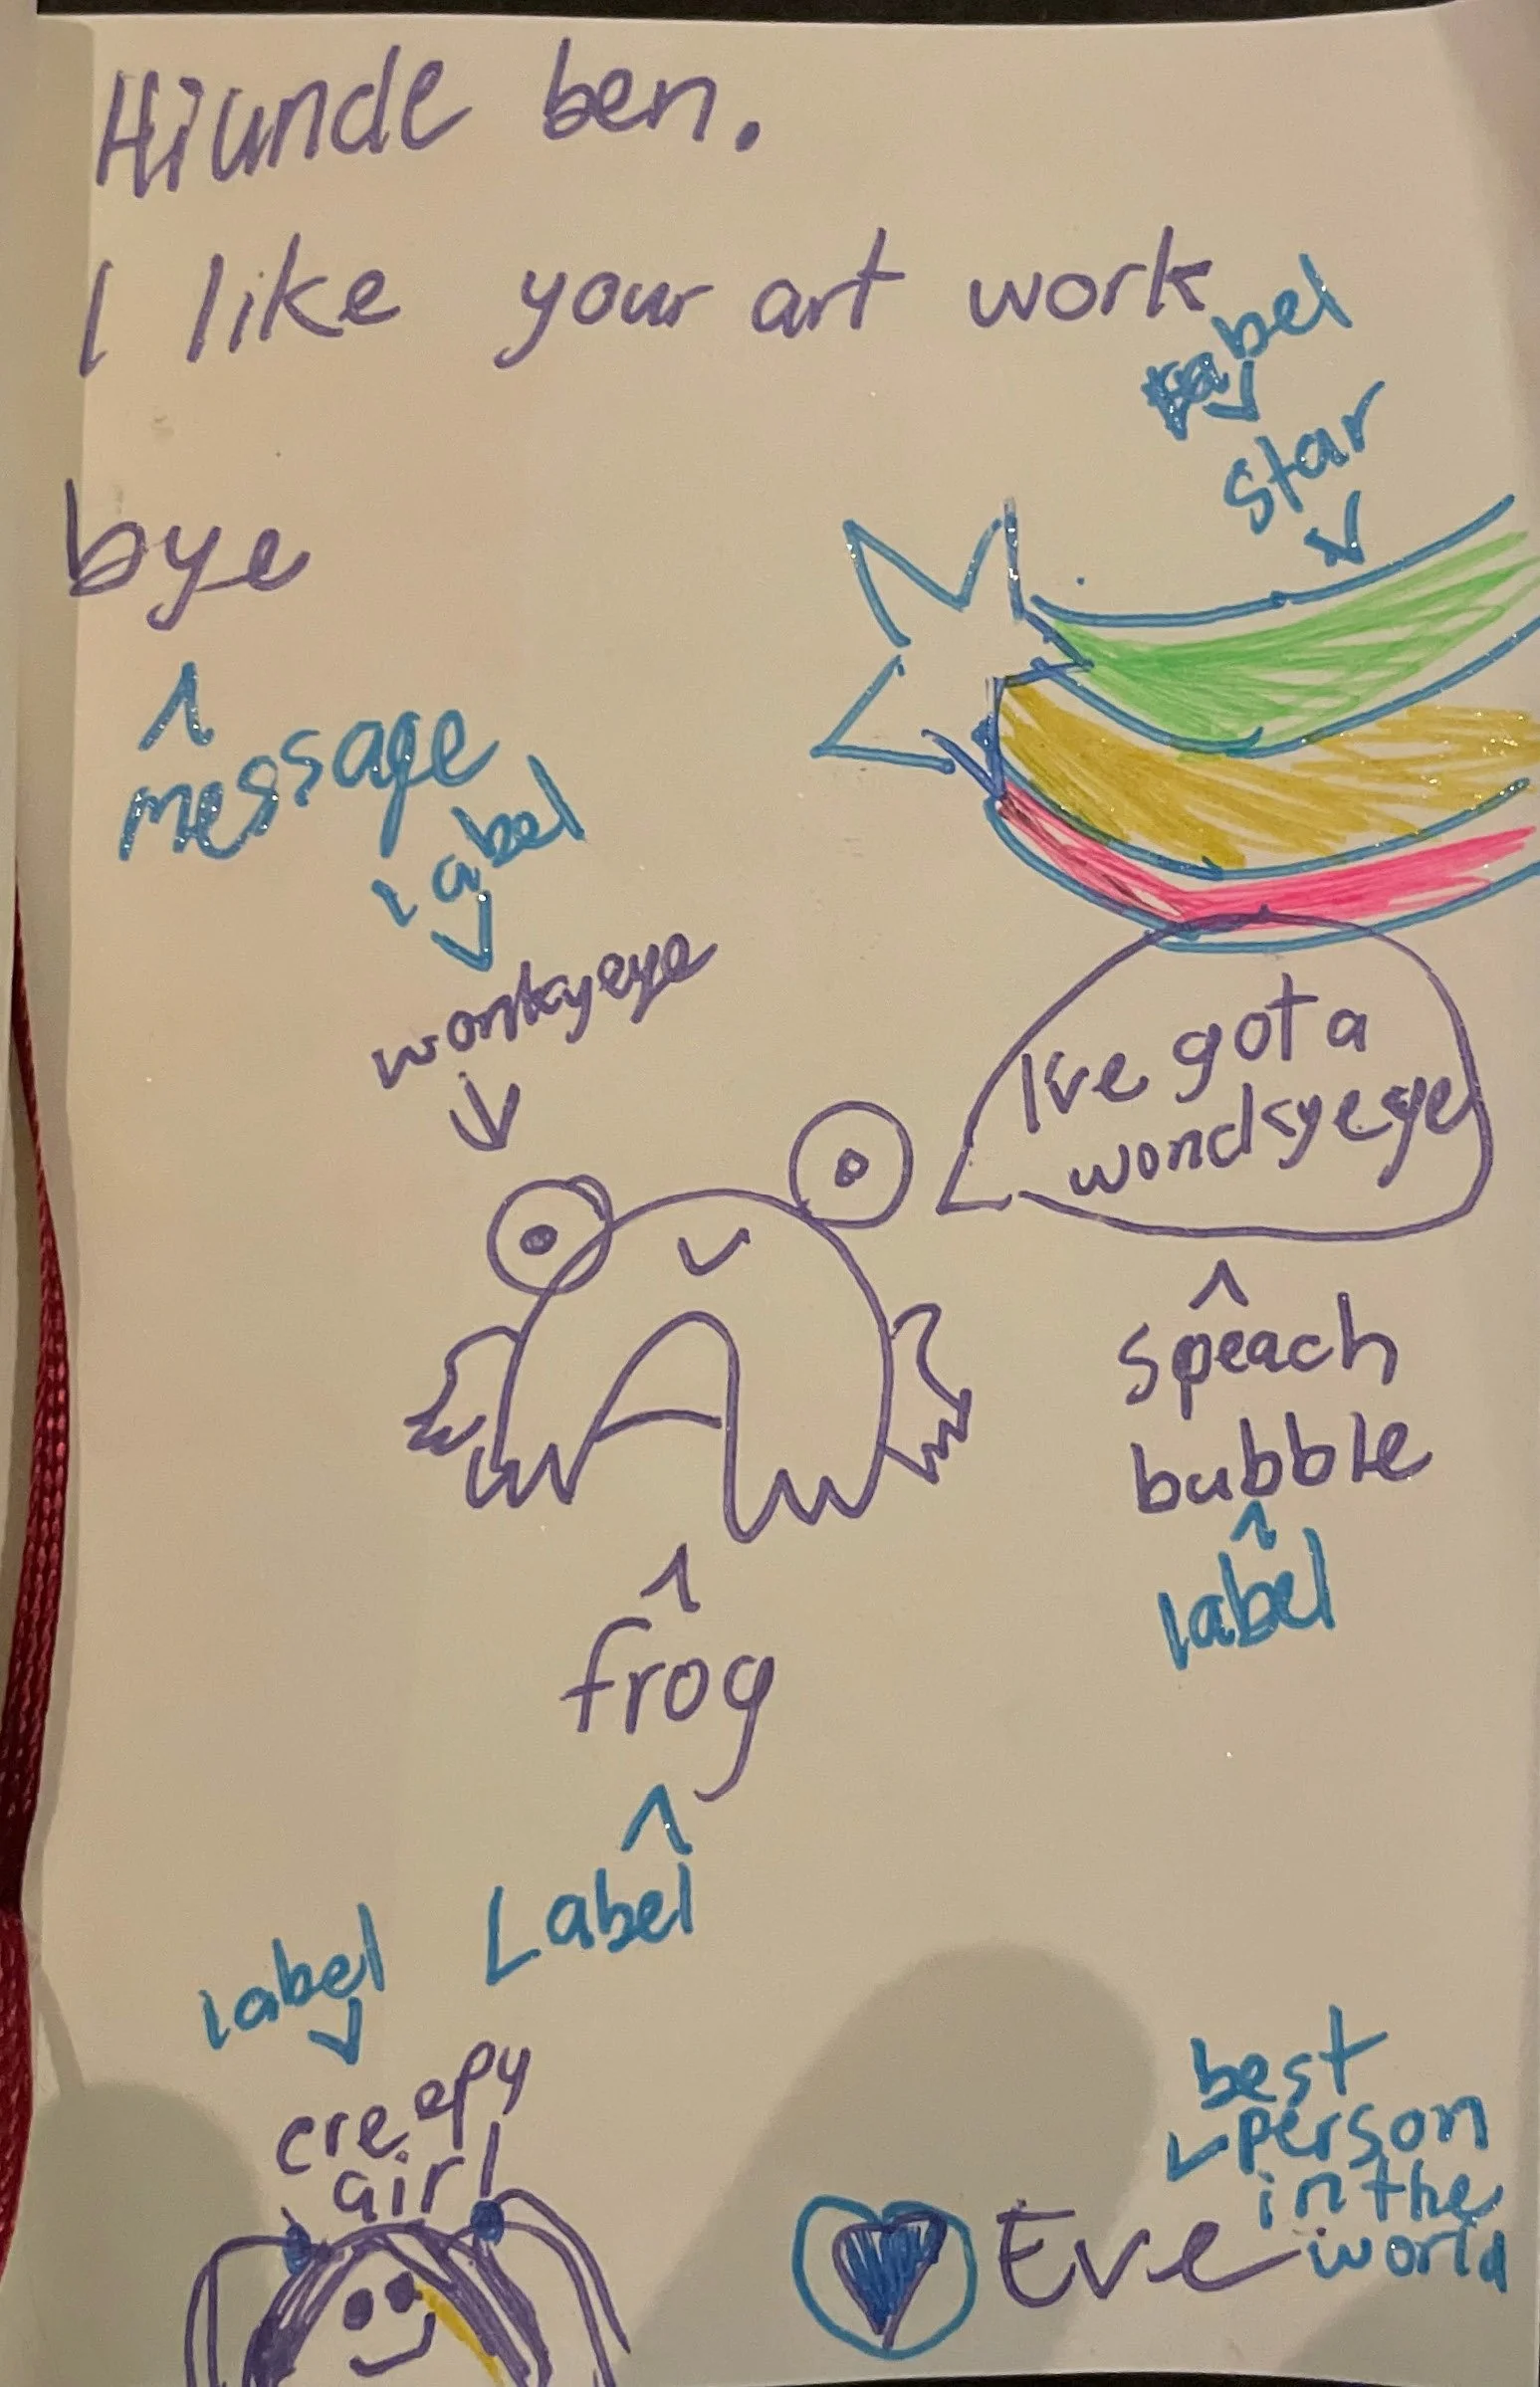 Hi unde ben.
I like your art work
label
star
bye
message
label
wonkyeye
I've got a
wondsyeye
speach
bubble
label
frog
Label
label
creepy
girl
best
person
in the
world
Eve